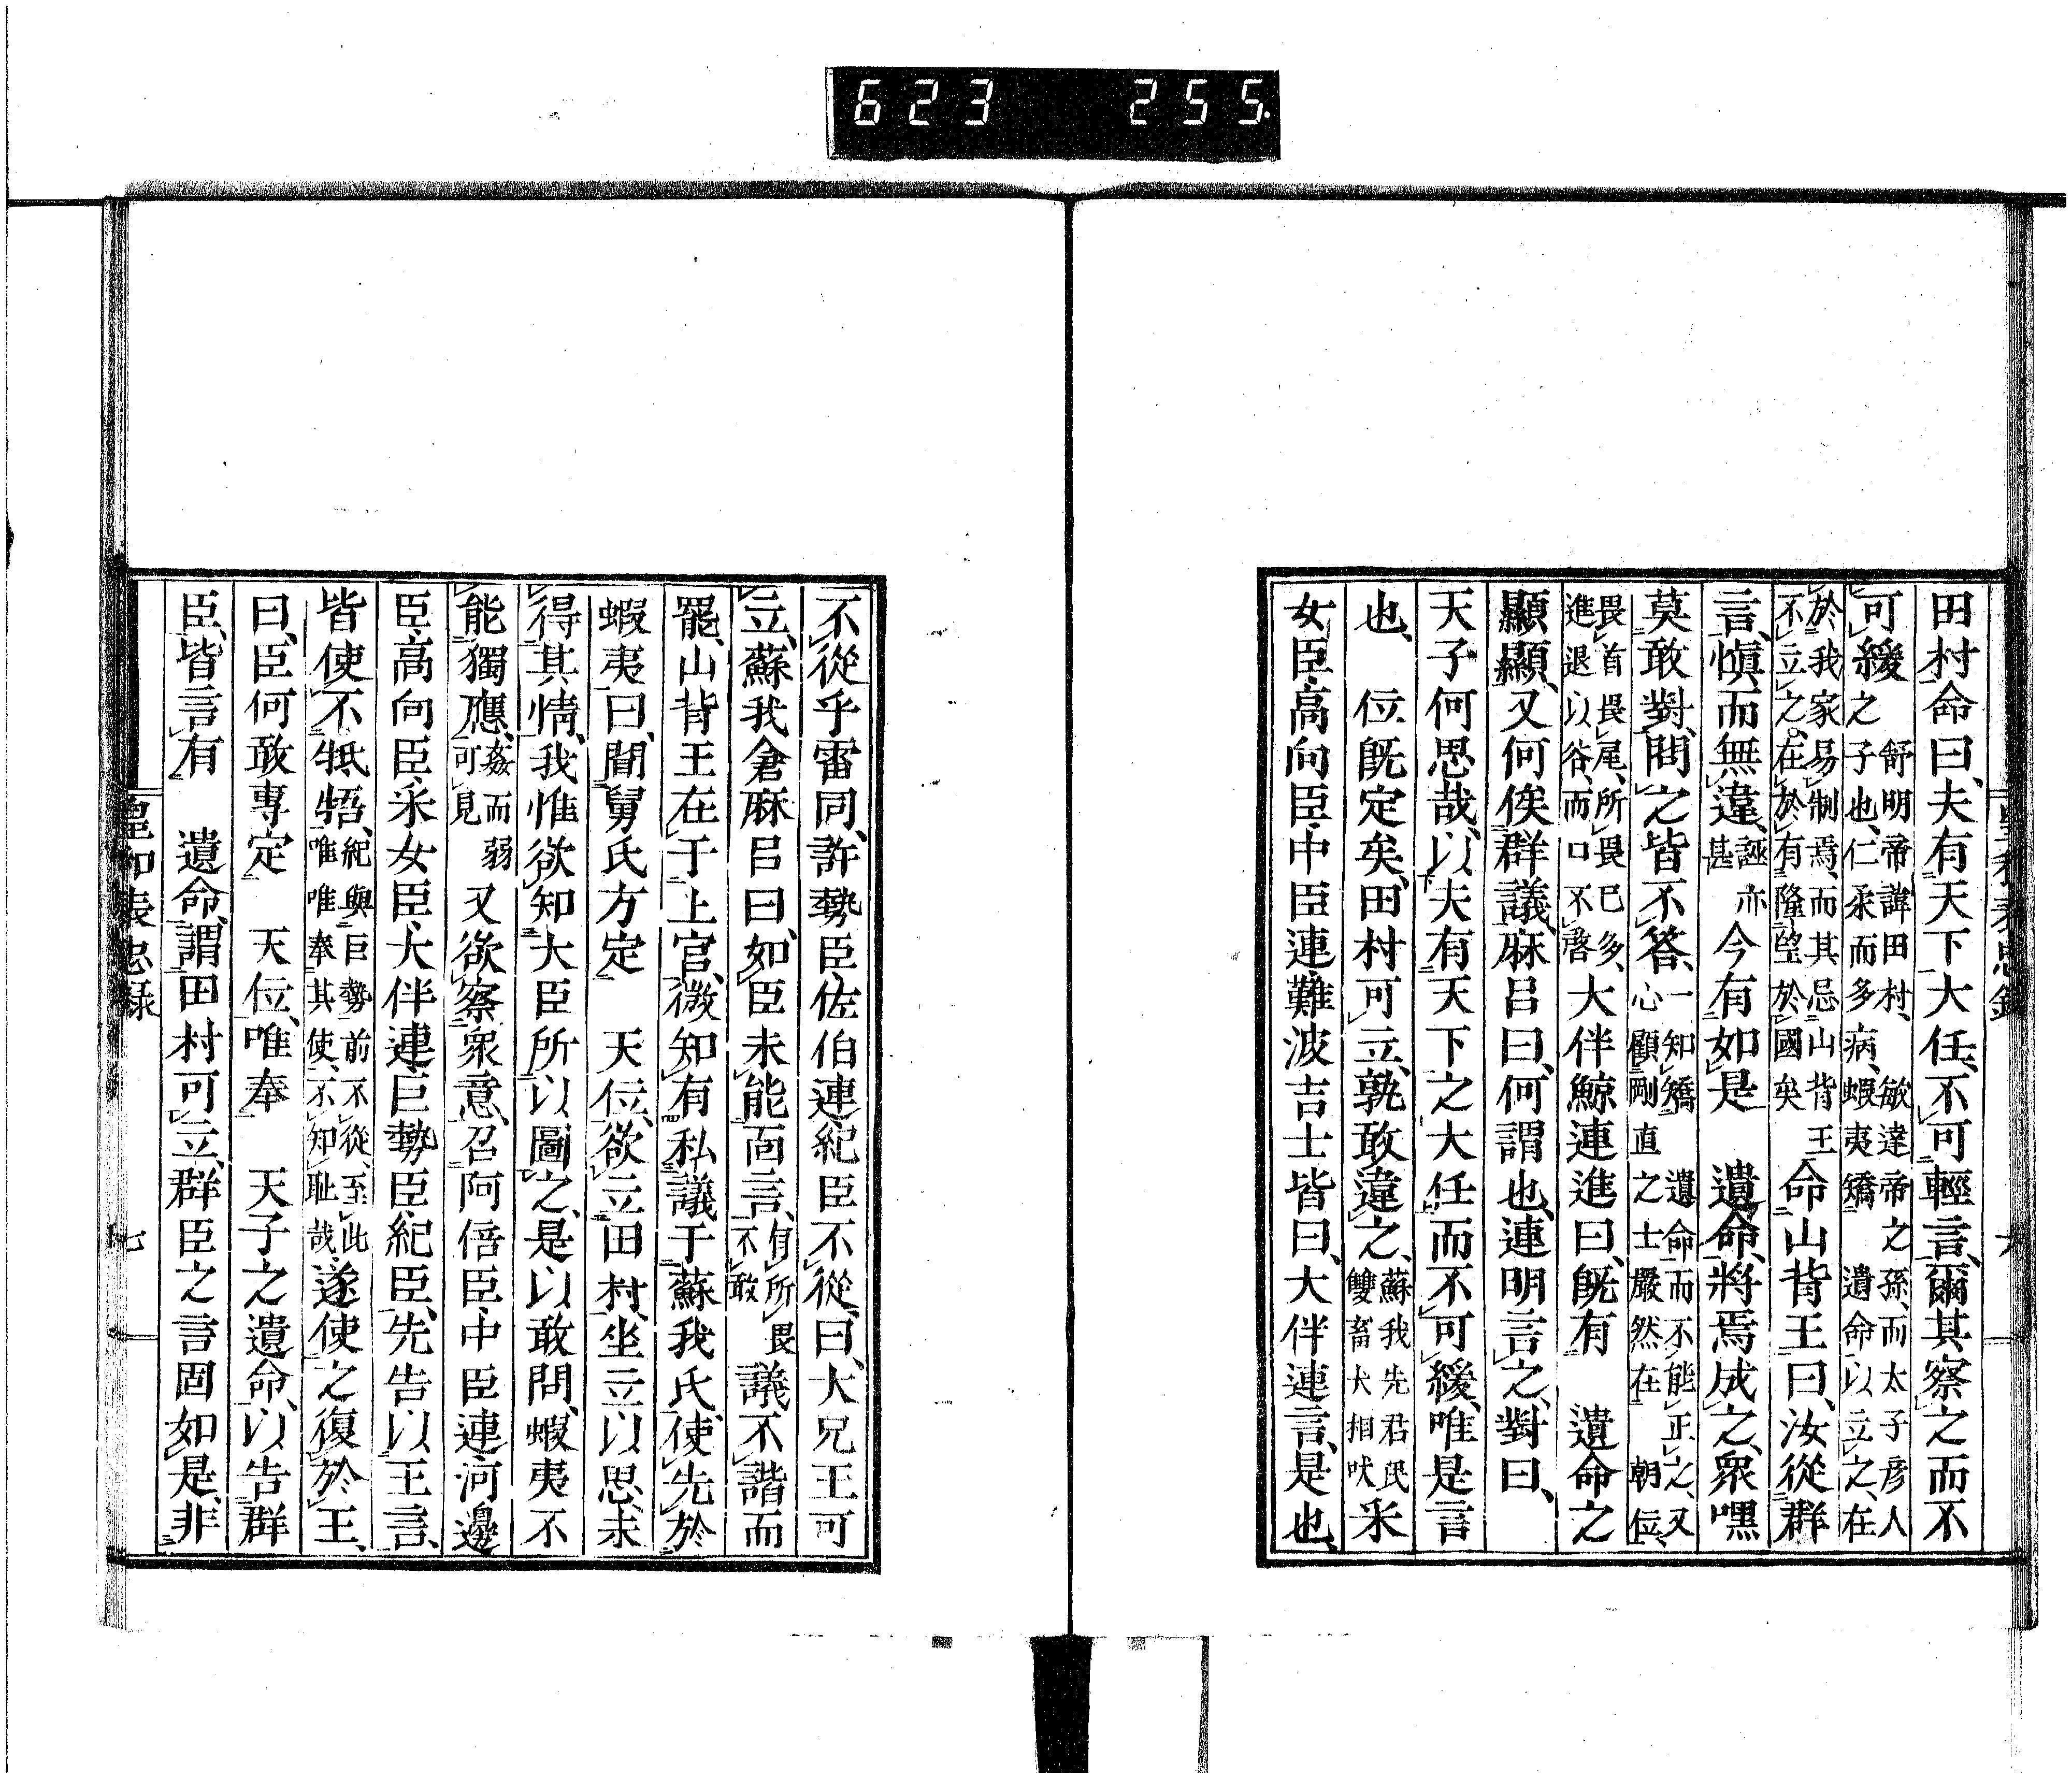 623 255.
田村命曰、夫有天下大任、不可輕言、爾其察之而不
可緩舒明帝諱田村、敏達帝之孫、而太子彦人之子也、仁柔而多病、蝦夷矯 遺命以立之、在
於我家易制焉、而其忌山背王不立之、在於有隆望於國矣命山背王曰、汝從群
言、愼而無違、誣亦甚今有如是 遺命、將焉成之、衆嘿
莫敢對、問之皆不答、一知矯 遺命而不能正之、又心顧剛直之士嚴然在 朝位、
畏首畏尾、所畏已多、進退以谷、而口不啓大伴鯨連進曰、既有 遺命之
顯顯、又何俟群議、麻呂曰、何謂也、連明言之、對曰、
天子何思哉、以夫有天下之大任而不可緩、唯是言
也、 位既定矣、田村可立、孰敢違之、蘇我先君氏雙畜犬相吠采
女臣高向臣中臣連難波吉士皆曰、大伴連言、是也、
不從乎雷同、許勢臣佐伯連紀臣不從、曰、大兄王可
立、蘇我倉麻呂曰、如臣未能面言、有所畏不敢議不諧而
罷、山背王在于上宮、微知有私議于蘇我氏、使先於
蝦夷曰、聞舅氏方定 天位、欲立田村、坐立以思、未
得其情、我惟欲知大臣所以圖之、是以敢問、蝦夷不
能獨應、姦而弱可見又欲察衆意、召阿倍臣中臣連河邊
臣高向臣采女臣大伴連巨勢臣紀臣、先告以王言、
皆使不牴牾、紀與巨勢前不從、至此唯唯奉其使、不知恥哉遂使之復於王、
曰、臣何敢專定 天位、唯奉 天子之遺命、以告群
臣、皆言有 遺命、謂田村可立、群臣之言固如是、非
皇和表忠録 七